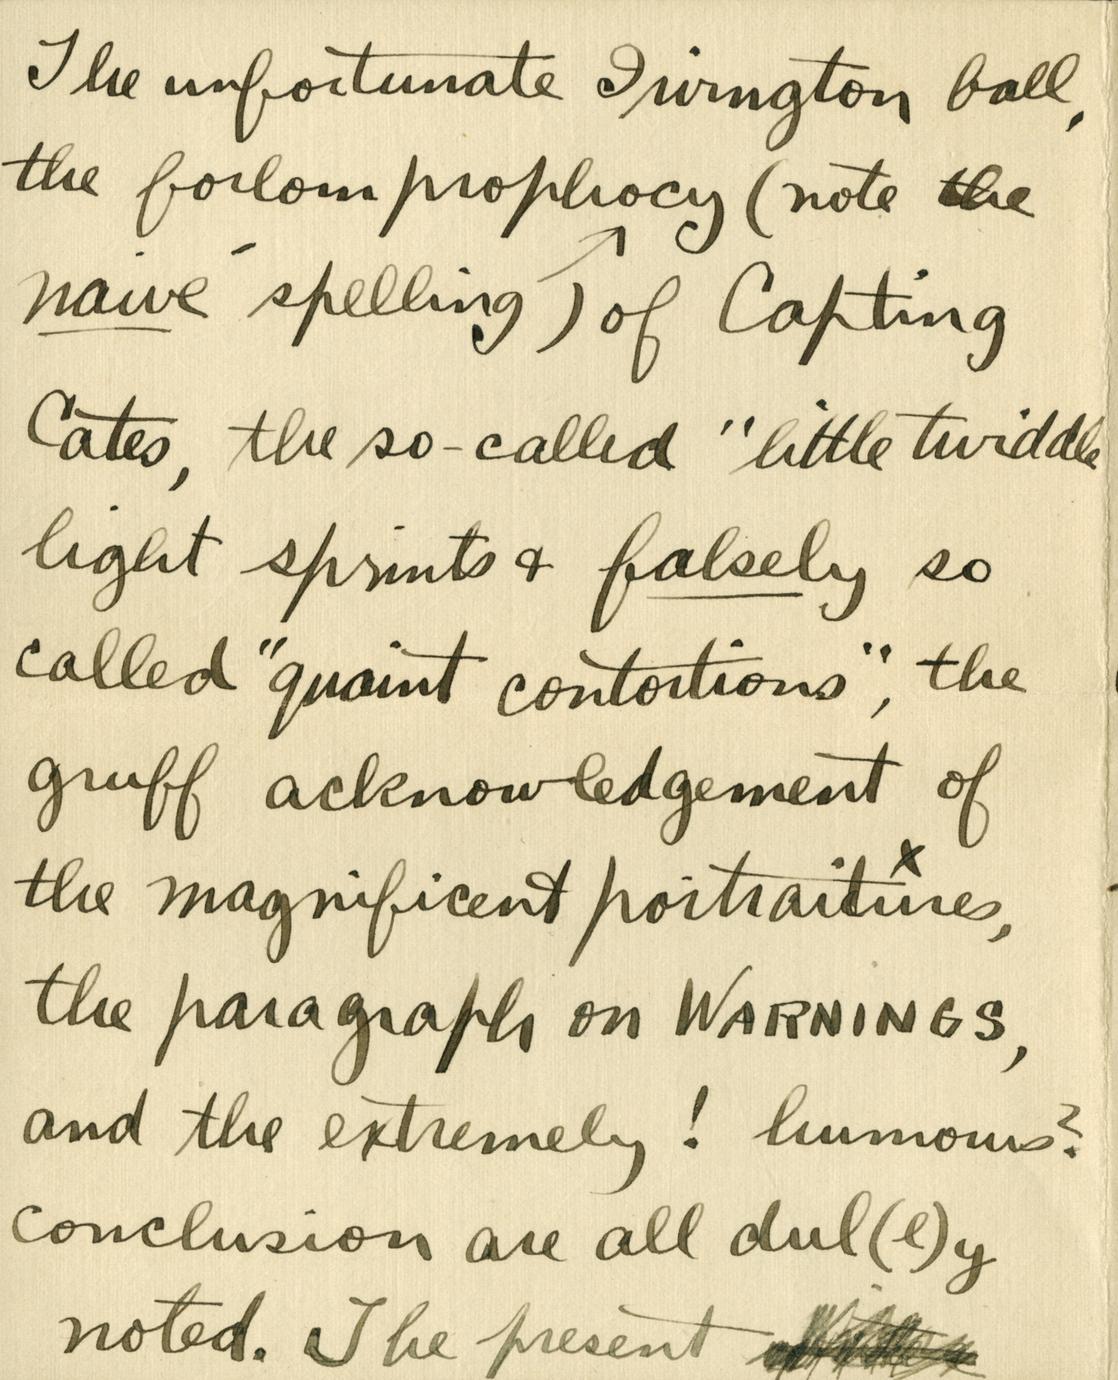 The unfortunate Irvington ball,
the forlorn prophocy (note the
naïve spelling) of Capting
Cates, the so-called "little twiddle
light sprints & falsely so
called "quaint contortions", the
gruff acknowledgement of
the magnificent portraitures,
the paragraph on WARNINGS,
and the extremely! humours?
conclusion are all dul(l)y
noted. The present